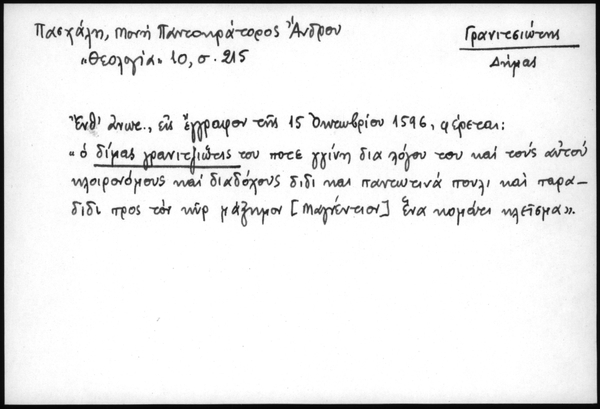 Πασχάλη, Μονή Παντοκράτορος Ἄνδρου
«Θεολογία» 10, σ. 215
Γρανιτσιώτης
Δήμας
Ἔνθ' ἀνωτ., εἰς ἔγγραφον τῆς 15 Ὀκτωβρίου 1596, φέρεται:
«ὁ δίμας γρανιτζιότις του ποτε γγίνη δια λόγου του καί τούς αὐτοῦ
κλοιρονόμους καί διαδόχους διδι και παντωτινά πουλι καὶ παρα-
διδι προς τὸν κῦρ μάξημον [Μαγνέντιον] ἕνα κομάτι κλεῖσμα».